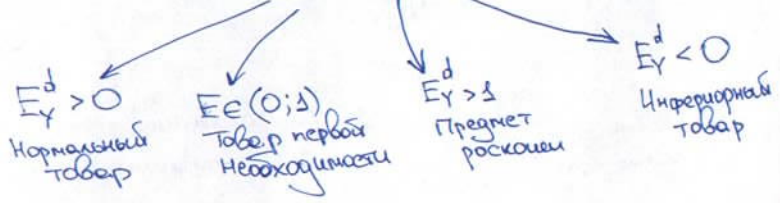 E^d_Y > 0
Нормальный
товар
E ∈ (0;1)
Товар первой
необходимости
E^d_Y > 1
Предмет
роскоши
E^d_Y < 0
Инфериорный
товар